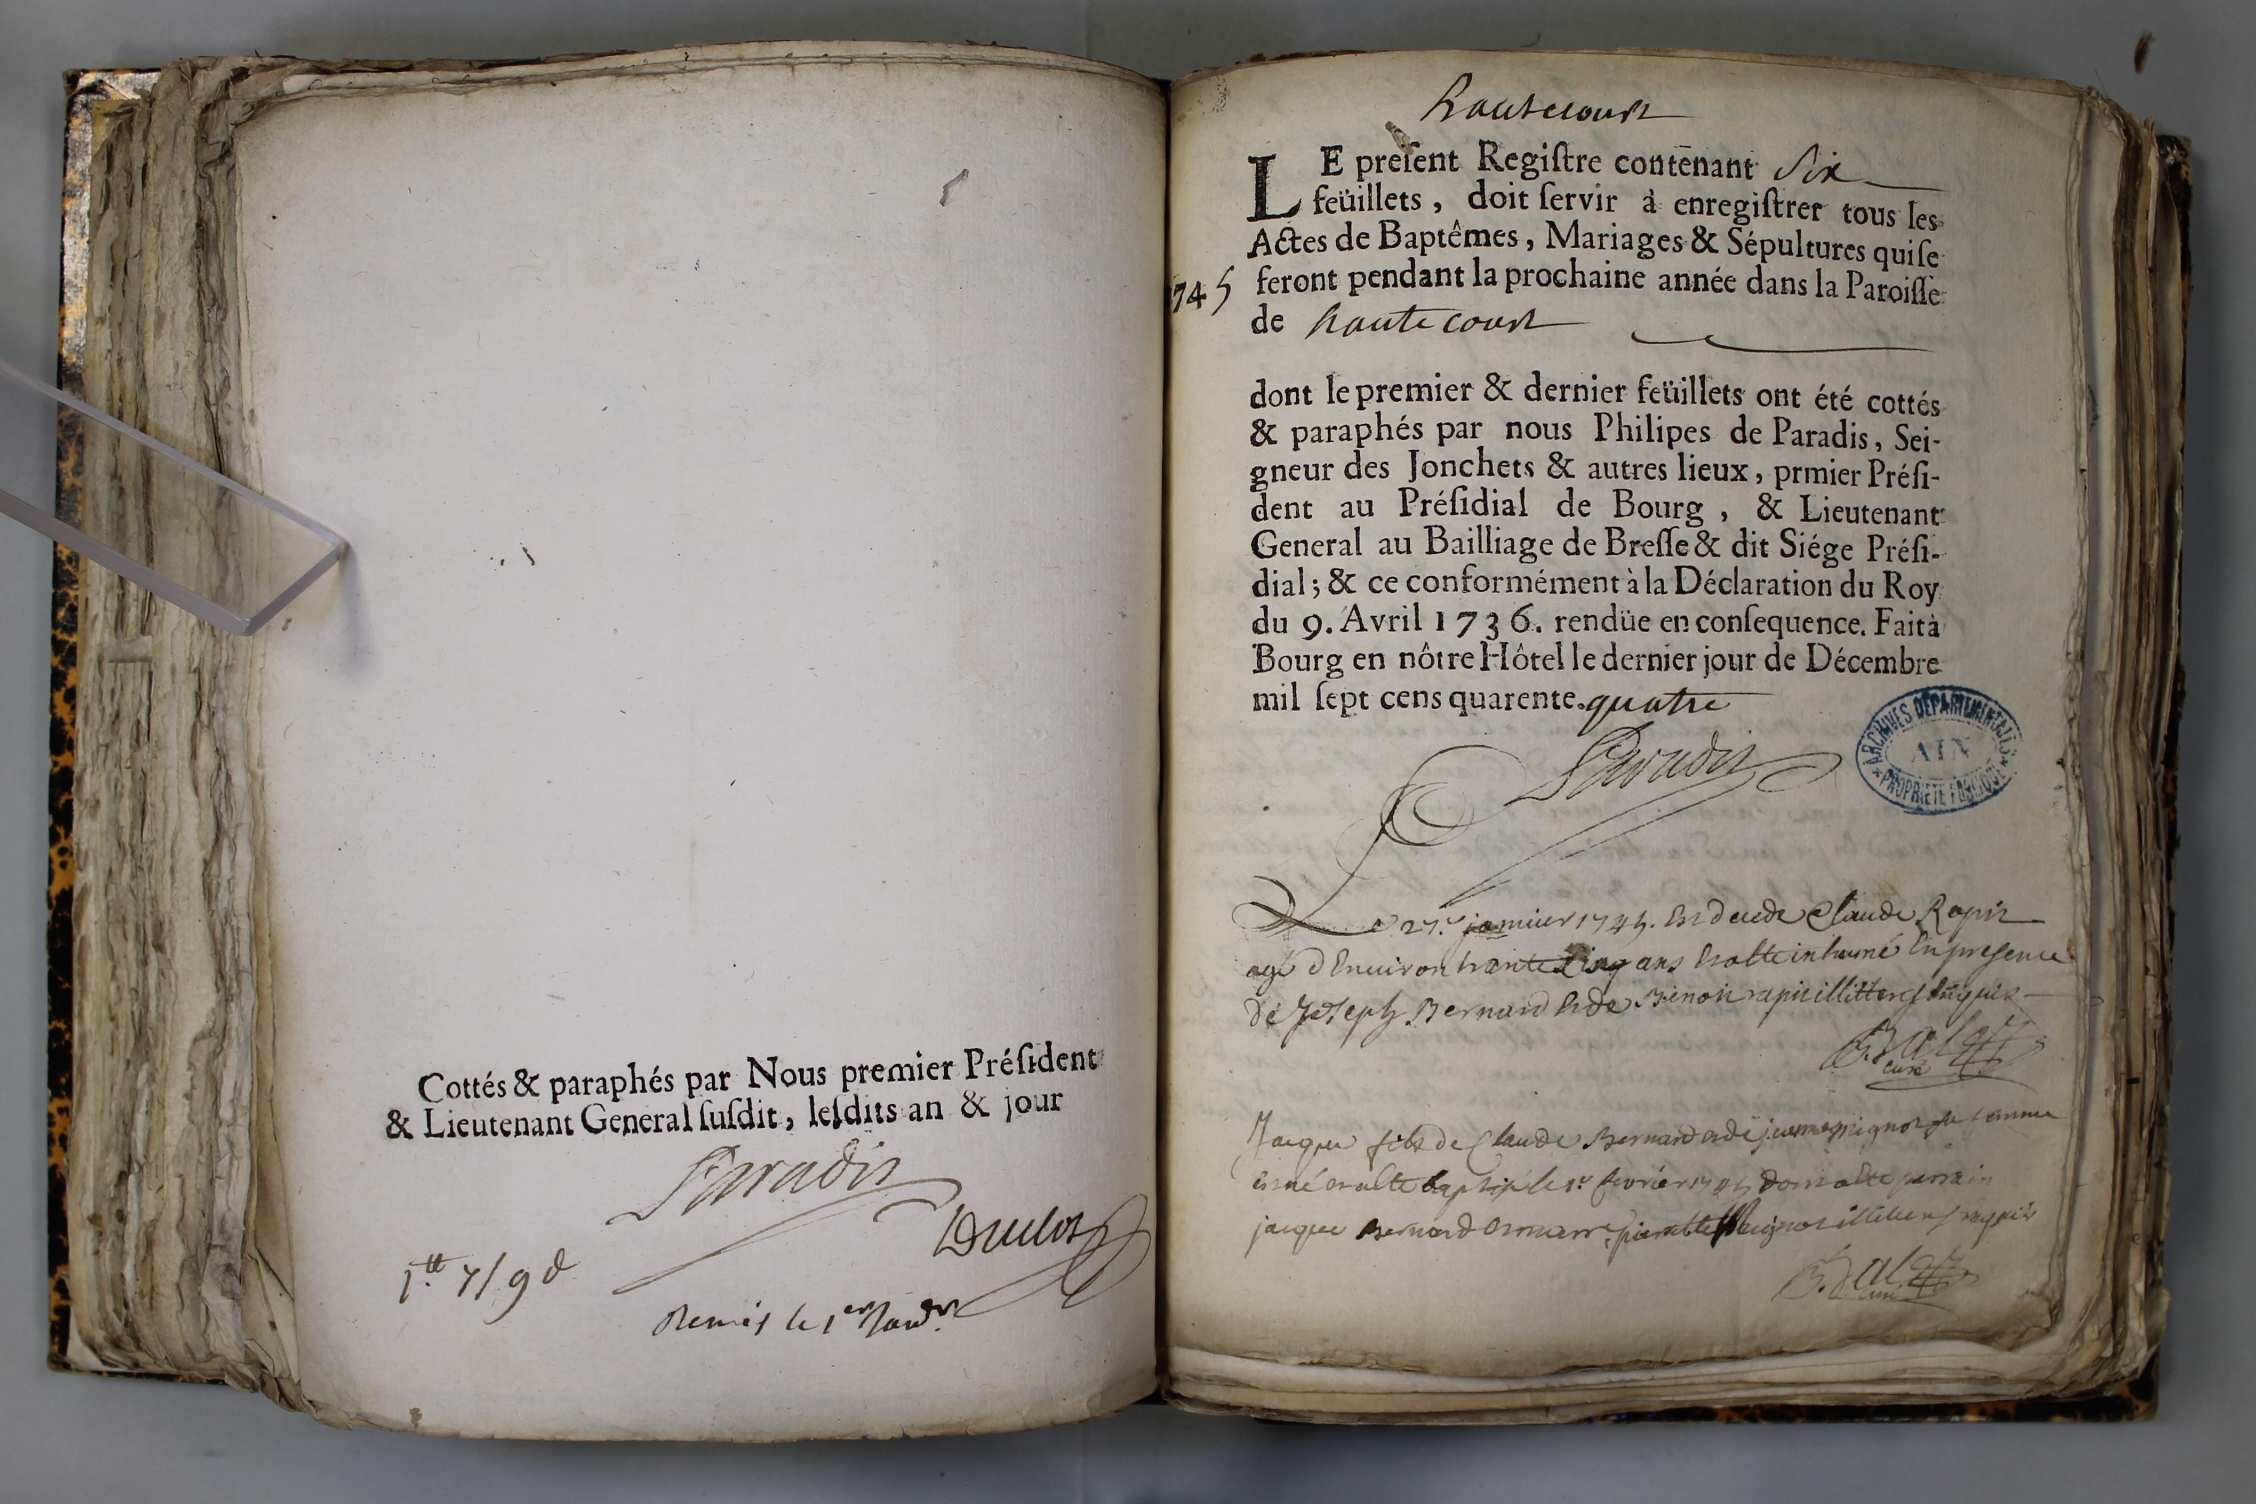 Cottés & paraphés par Nous premier Préſident
& Lieutenant General ſuſdit, leſdits an & jour
Paradis
Duclos
1.tt 7/ 9 d
Remis le 1er Janvr.
hautecourt
LE preſent Regiſtre contenant Six
feüillets, doit ſervir à enregiſtrer tous les
Actes de Baptêmes, Mariages & Sépultures qui ſe
1745 feront pendant la prochaine année dans la Paroiſſe
de hautecourt
dont le premier & dernier feüillets ont été cottés
& paraphés par nous Philipes de Paradis, Sei-
gneur des Jonchets & autres lieux, prmier Préſi-
dent au Préſidial de Bourg, & Lieutenant
General au Bailliage de Breſſe & dit Siége Préſi-
dial; & ce conformément à la Déclaration du Roy
du 9. Avril 1736. rendüe en conſequence. Fait à
Bourg en nôtre Hôtel le dernier jour de Décembre
mil ſept cens quarente.quatre
Paradis
ARCHIVES DÉPARTEMENTALES
AIN
PROPRIÉTÉ PUBLIQUE
Le 27.e janvier 1745. Est decede Claude Rapin
agé d'Environ trante cinq ans Et a Ete inhumé En presence
de Joseph Bernard et de Benoit rapin illitterés Enquis
curé
Jacque fils de Claude Bernard et de jeanne mignot sa femme
Est né et a Ete baptisé le 1er fevrier 1745 dont a Ete parrain
jacque Bernard et marr. mignot illiterés enquis
curé